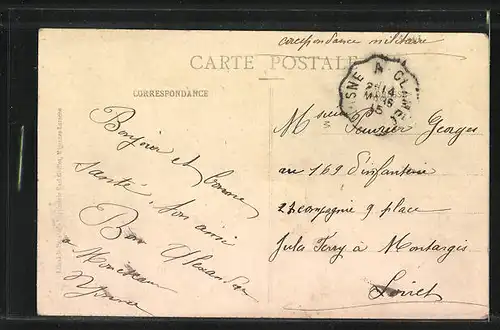 correspondance militaire
CARTE POSTALE
CORRESPONDANCE
Bonjour et bonne
santé, ton ami
Bon Alexandre
a
Yonne
A CLAME
14
MARS
15
Monsieur Georges
au 169 d'infanterie
27 compagnie 9 place
Jule Ferry a Montargis
Loiret